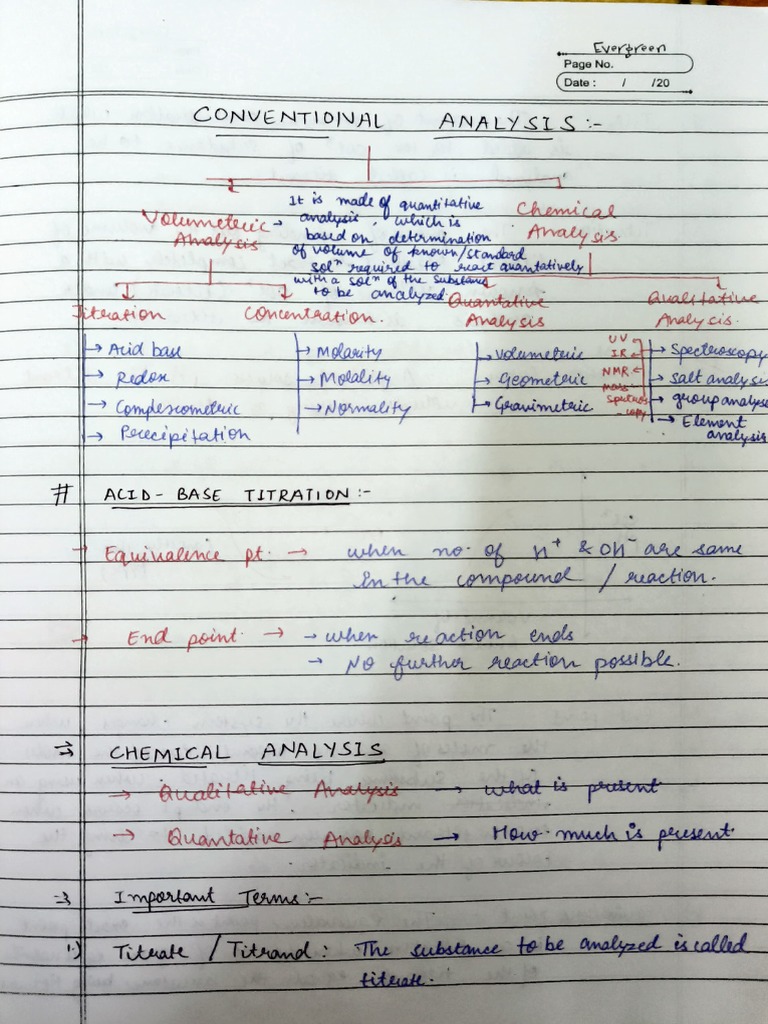 Evergreen
Page No.
Date : / /20
CONVENTIONAL ANALYSIS :-
Volumeteric Analysis → It is made of quantitative analysis, which is based on determination of volume of known/standard solⁿ required to react quantatively with a solⁿ of the substance to be analyzed.
Chemical Analysis
Titration
Concentration.
Quantative Analysis
Qualitative Analysis.
→ Acid base
→ Redox
→ Complexometric
→ Percepitation
→ Molarity
→ Molality
→ Normality
→ Volumetric
→ Geometric
→ Gravimetric
UV
IR
NMR
mass
→ Spectroscopy
→ salt analysis
→ group analyse
→ Element analysis
# ACID-BASE TITRATION :-
→ Equivalence pt. → when no. of H⁺ & OH⁻ are same
in the compound / reaction.
→ End point → → when reaction ends
→ No further reaction possible.
⇒ CHEMICAL ANALYSIS
→ Qualitative Analysis → what is present
→ Quantative Analysis → How much is present.
⇒ Important Terms :-
1.) Titrate / Titrand : The substance to be analyzed is called
titrate.